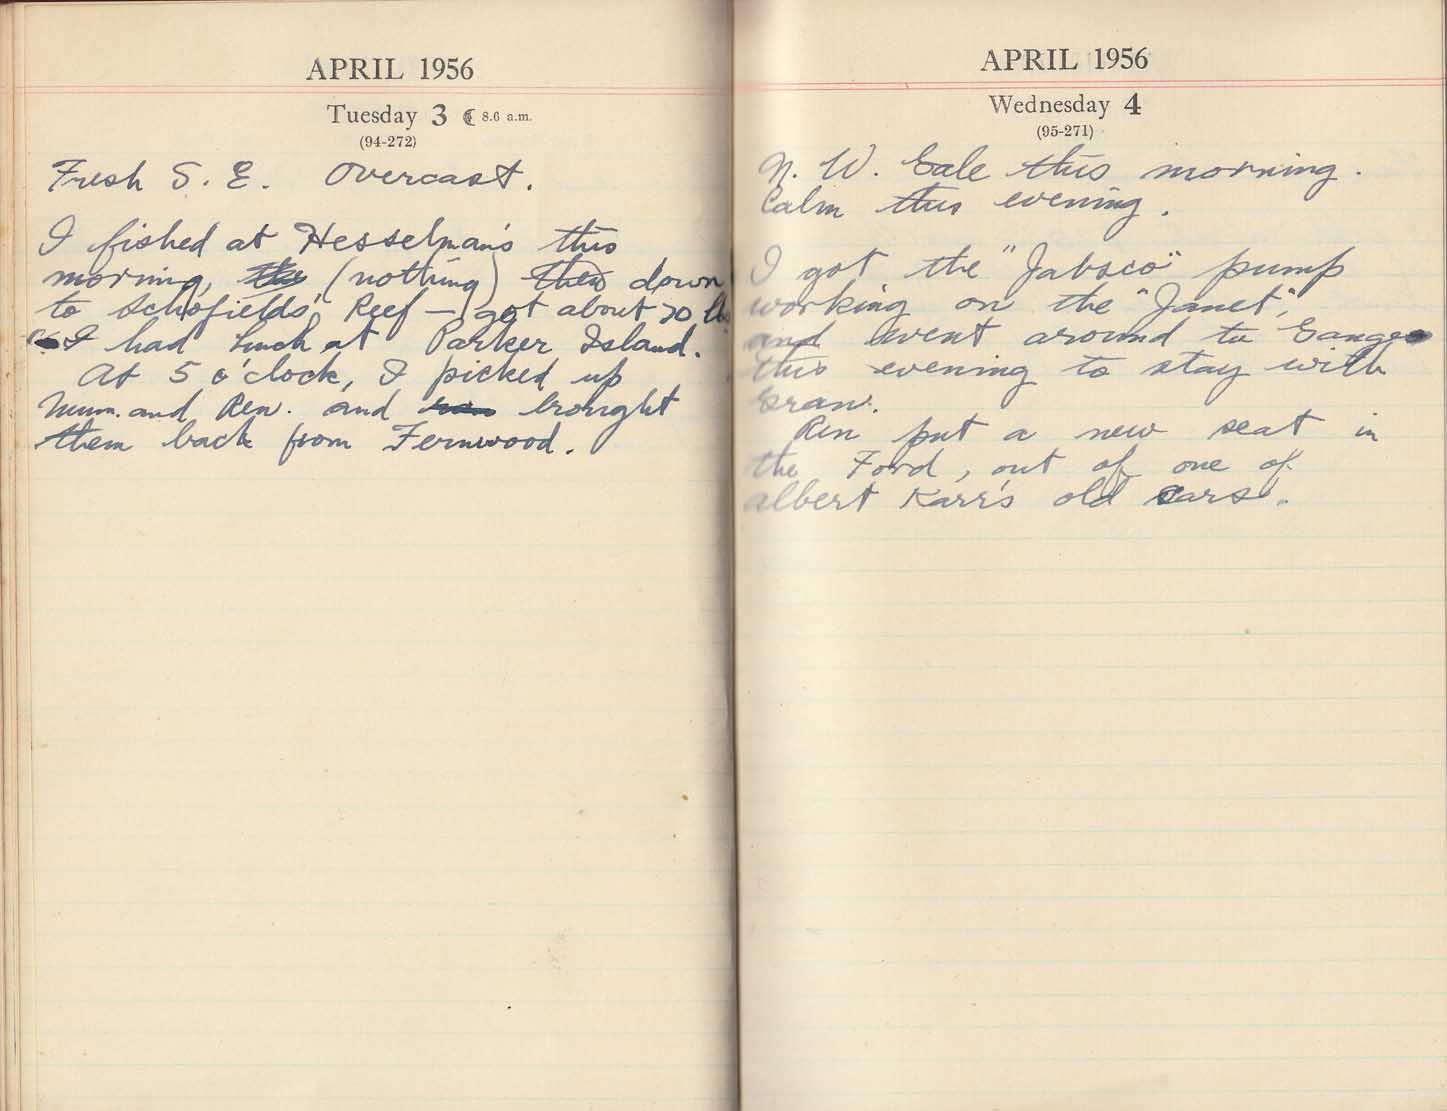 APRIL 1956
Tuesday 3 ☾ 8.6 a.m.
(94-272)
Fresh S. E. Overcast.
I fished at Hesselman's this
morning, the (nothing) then down
to Schofields' Reef — got about 70 lbs
I had lunch at Parker Island.
At 5 o'clock, I picked up
Mum. and Ren. and ran brought
them back from Fernwood.
APRIL 1956
Wednesday 4
(95-271)
N. W. Gale this morning.
Calm this evening.
I got the "Jabsco" pump
working on the "Janet",
and went around to Ganges
this evening to stay with
Gran.
Ren put a new seat in
the Ford, out of one of
albert Karr's old cars.